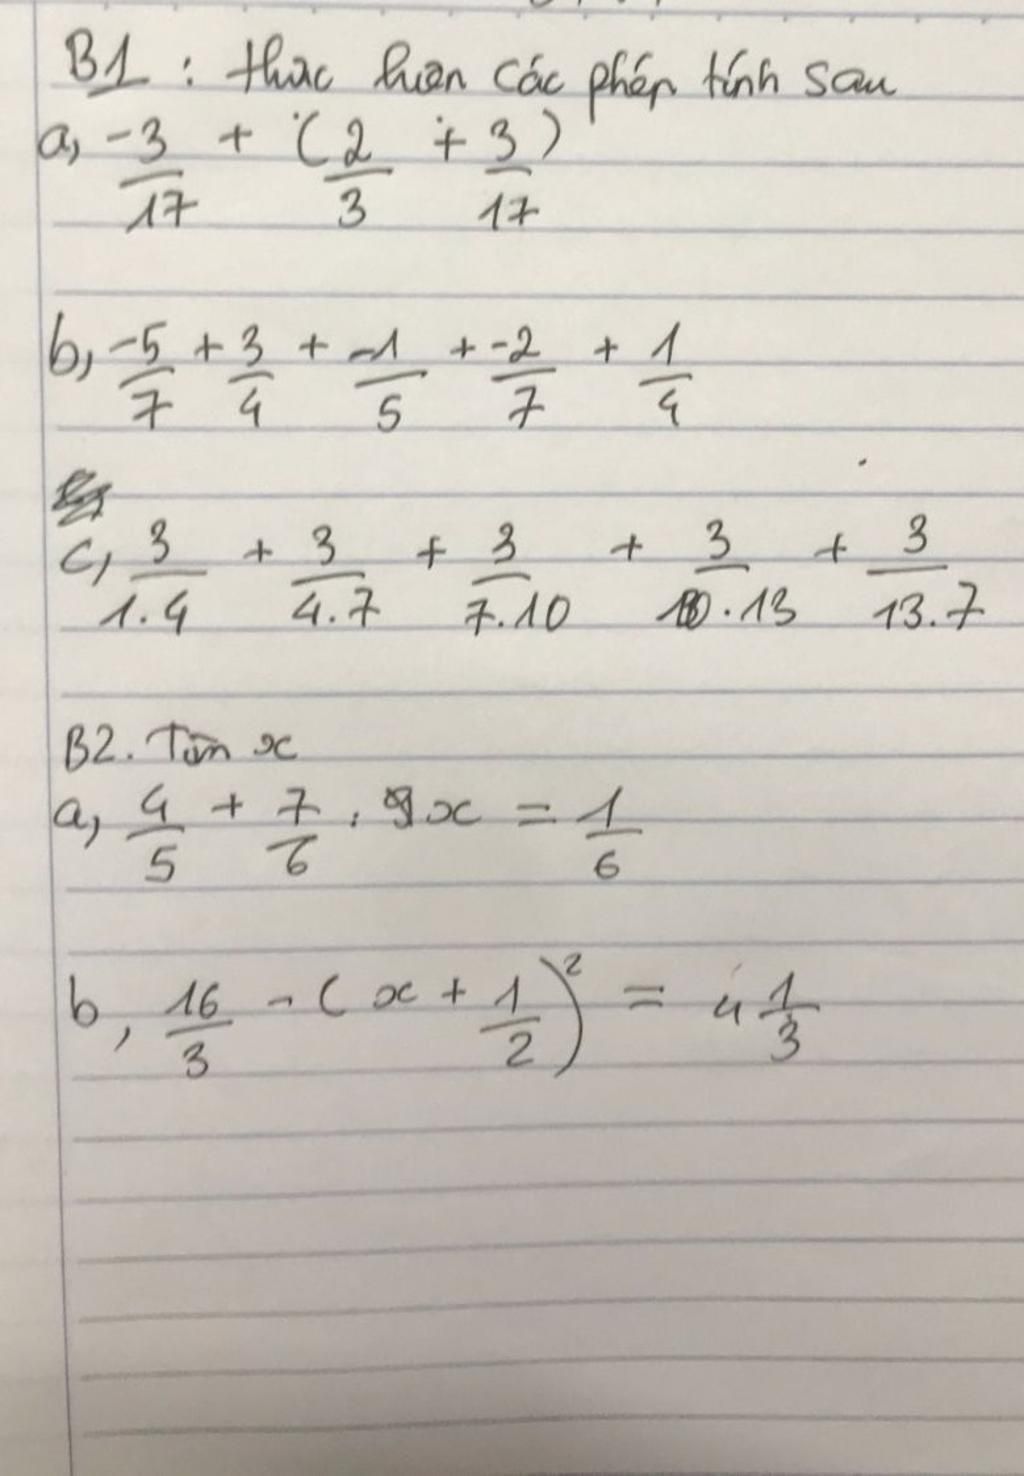 B1 : thực hiện các phép tính sau
a, -3/17 + (2/3 + 3/17)
b, -5/7 + 3/4 + -1/5 + -2/7 + 1/4
c, 3/1.4 + 3/4.7 + 3/7.10 + 3/10.13 + 3/13.7
B2. Tìm x
a, 4/5 + 7/6 . x = 1/6
b, 16/3 - (x + 1/2)² = 4 1/3